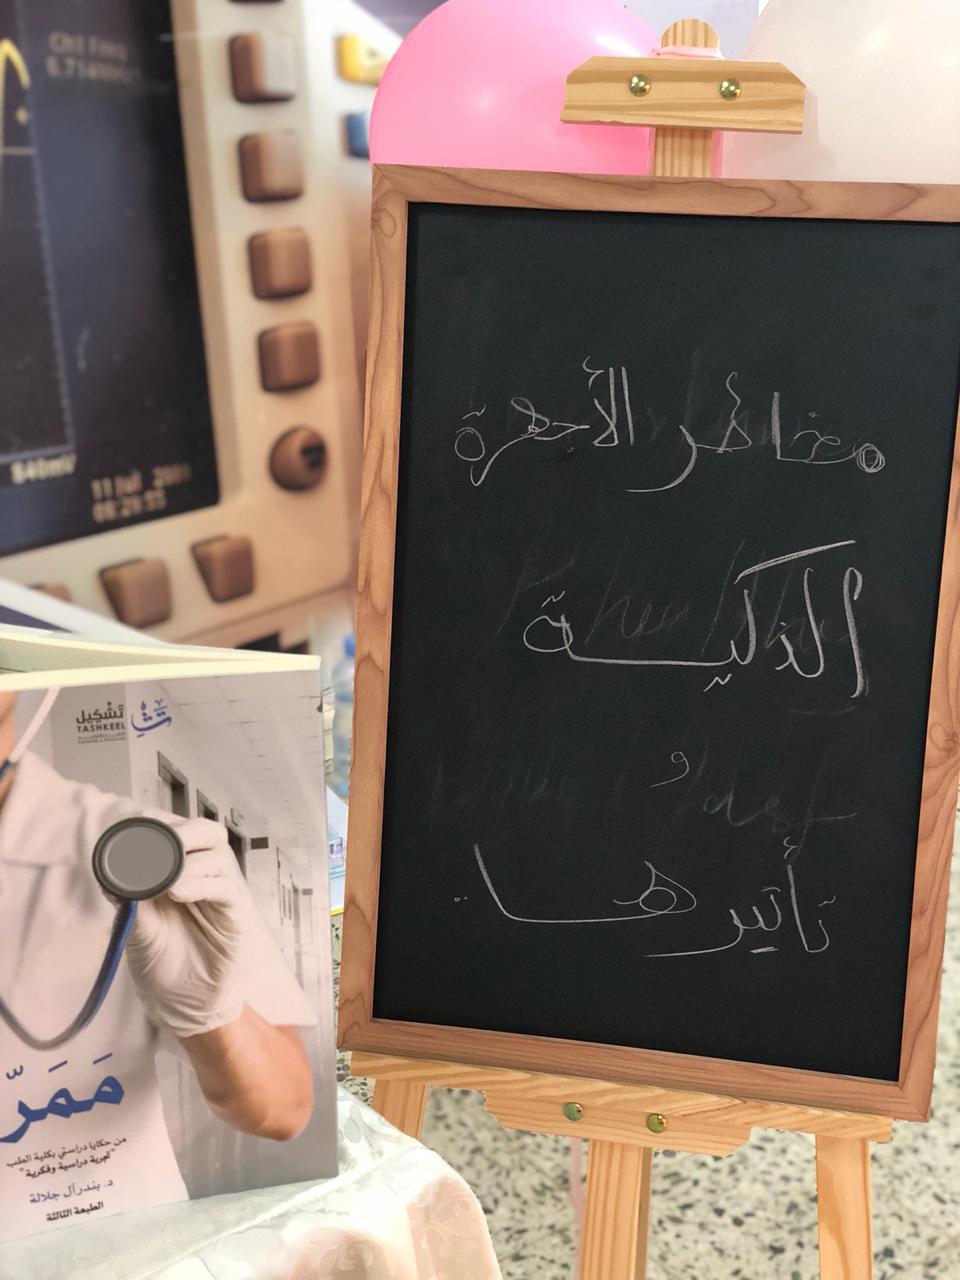 Ch1 Freq
840mV
11 Jul
08:29:55
مخاطر الأجهزة
الذكية
و
تأثيرها
تشكيل
TASHKEEL
ممر
من حكايا دراستي بكلية الطب
"تجربة دراسية وفكرية"
د. بندر آل جلالة
الطبعة الثالثة